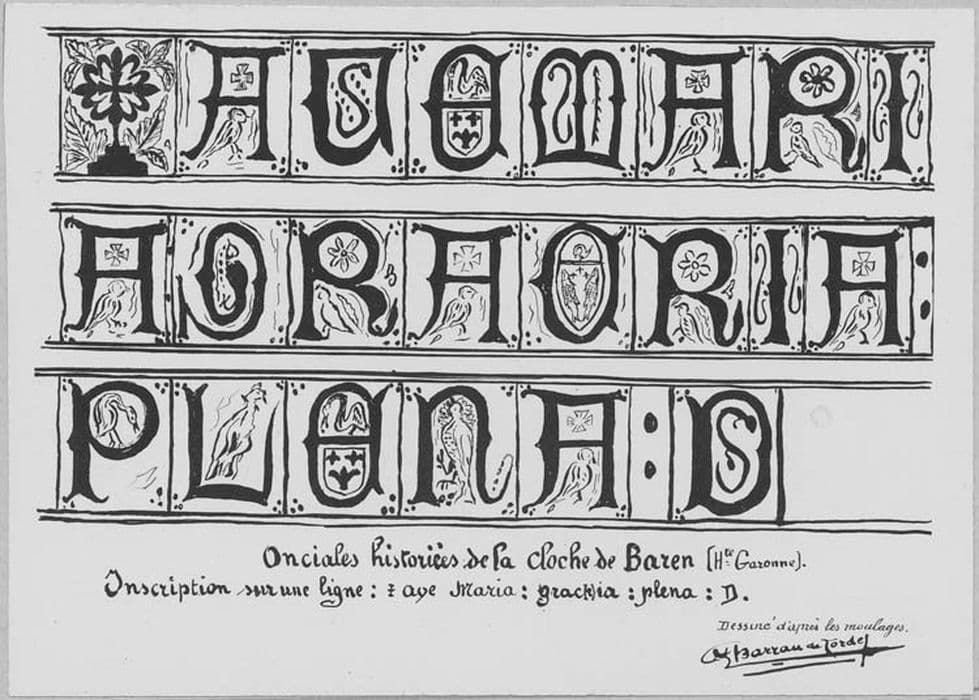 AUE MARI
A : GRACRIA :
PLENA : D
Onciales historiées de la cloche de Baren (Hte Garonne).
Inscription sur une ligne : ‡ aye Maria : grac(r)ia : plena : D.
Dessiné d'après les moulages.
Barrau de